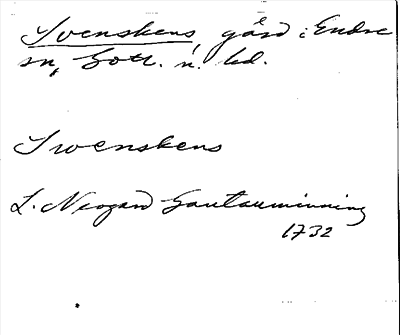 Svenskens, gård i Endre
sn, Gotl. n. hd.
Swenskens
L. Neogard Gautauminning
1732